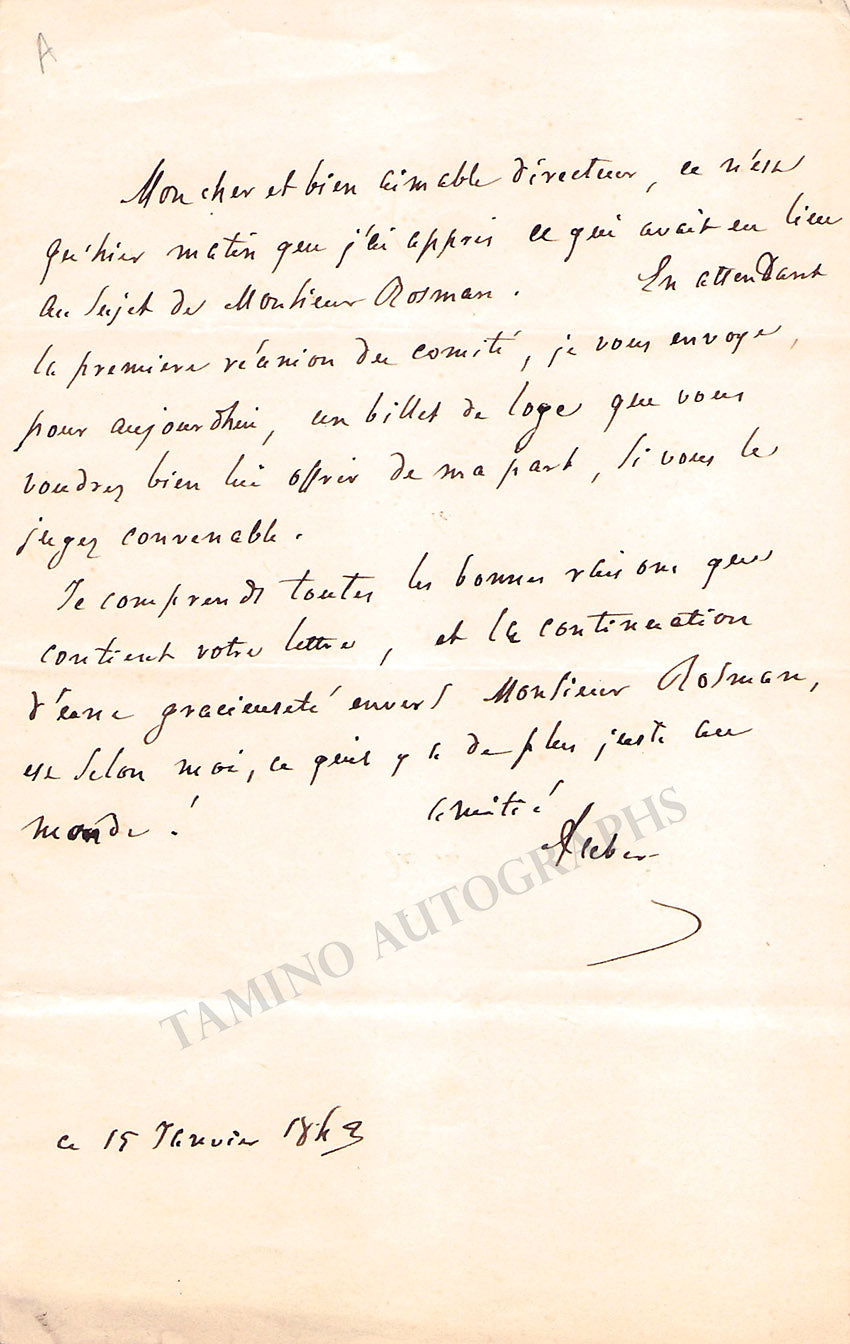 A
Mon cher et bien aimable directeur, ce n'est
qu'hier matin que j'ai appris ce qui avait eu lieu
au sujet de Monsieur Rosman. En attendant
la premiere réunion du comité, je vous envoye,
pour aujourdhui, un billet de loge que vous
voudrez bien lui offrir de ma part, si vous le
jugez convenable.
Je comprends toutes les bonnes raisons que
contient votre lettre, et la continuation
d'une gracieuseté envers Monsieur Rosman,
est selon moi, ce qu'il y a de plus juste au
monde ! amitié
Auber
TAMINO AUTOGRAPHS
ce 15 Janvier